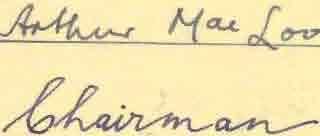 Arthur Mae Loo
Chairman